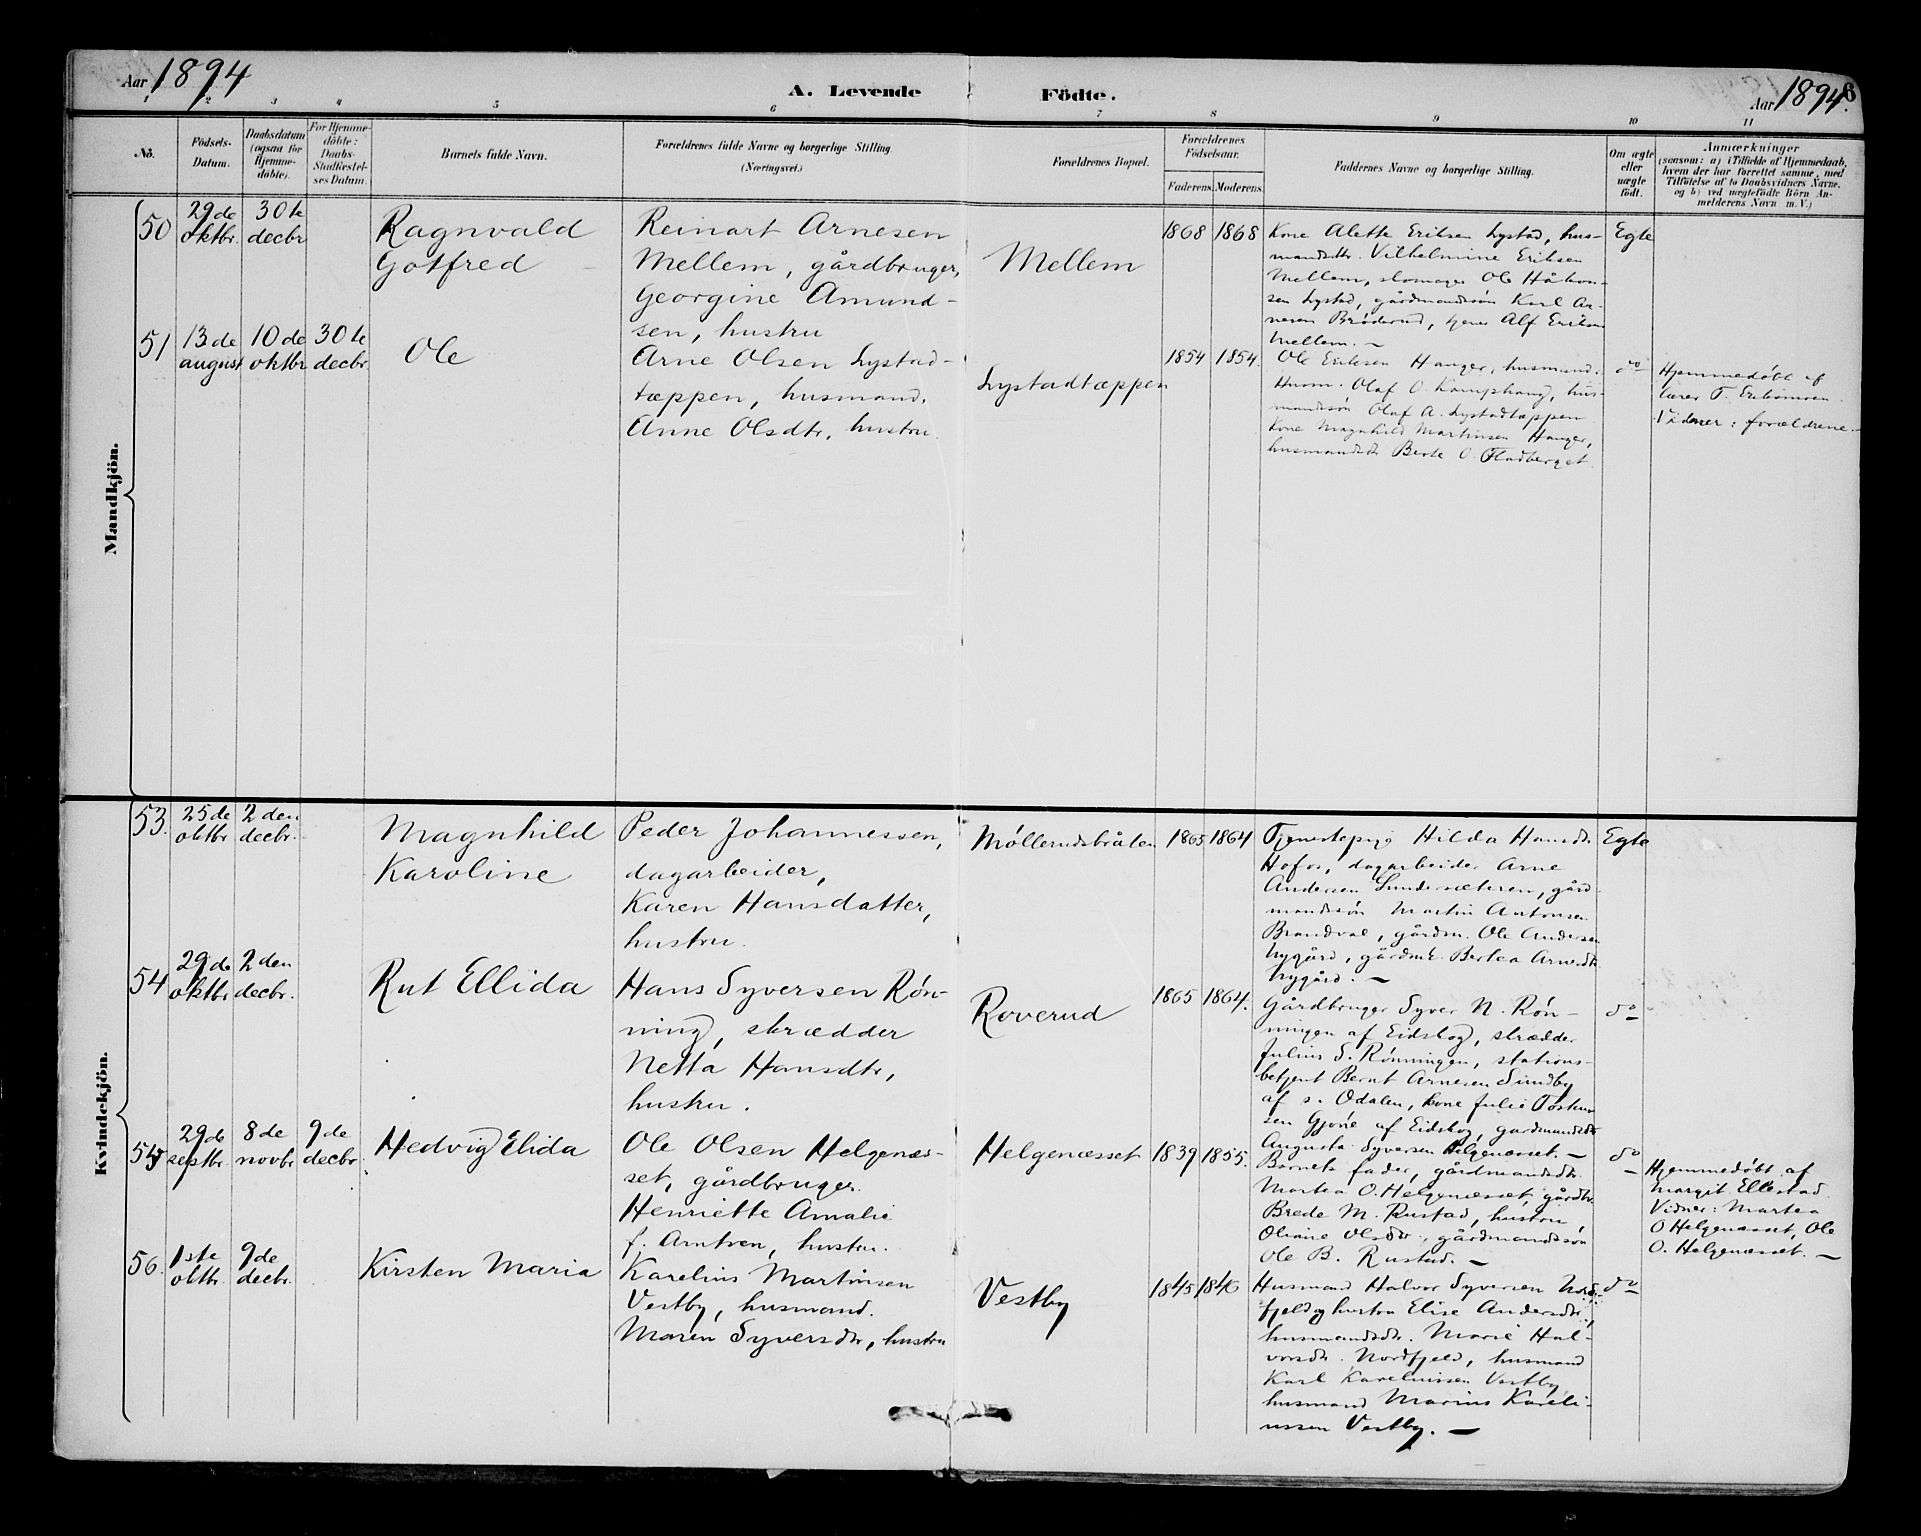 Aar 1894
A. Levende Födte.
Aar 1894. 6
1 2 3 4 5 6 7 8 9 10 11
No.
Födsels-
Datum.
Daabsdatum
(ogsaa for
Hjemme-
döbte).
For Hjemme-
döbte:
Daabs-
Stadfæstel-
ses Datum.
Barnets fulde Navn.
Forældrenes fulde Navne og borgerlige Stilling
(Næringsvei.)
Forældrenes Bopæl.
Forældrenes
Födselsaar.
Faderens. Moderens.
Faddernes Navne og borgerlige Stilling.
Om ægte
eller
uægte
födt.
Anmærkninger
(saasom: a) i Tilfælde af Hjemmedaab,
hvem der har forrettet samme, med
Tilföielse af to Daabsvidners Navne,
og b) ved uægtefödte Börn An-
melderens Navn m. V.)
Mandkjön.
50
29de
oktbr.
30te
decbr
Ragnvald
Gotfred
Reinart Arnesen
Mellem, gårdbruger,
Georgine Amund-
sen, hustru
Mellem
1868 1868
Kone Alette Eriksen Lystad, hus-
mandsdtr. Vilhelmine Eriksen
Mellem, skomager Ole Håkon-
sen Lystad, gårdmandssøn Karl Ar-
nesen Brøderud, tjener Alf Eriksen
Mellem. —
Egte
51
13de
august
10de
oktbr
30te
decbr.
Ole
Arne Olsen Lystad-
tæppen, husmand.
Anne Olsdtr, hustru.
Lystadtæppen
1854 1854.
Ole Eriksen Hanger, husmand.
Husm. Olaf O. Kamphaug, hus-
mandssøn Olaf A. Lystadtæppen
Kone Magnhild Martinsen Hanger,
husmandsdtr Berte O. Fladberget.
do
Hjemmedøbt af
lærer T.
Vidner: forældrene.
Kvindekjön.
53.
25de
oktbr.
2den
decbr.
Magnhild
Karoline
Peder Johannessen,
dagarbeider,
Karen Hansdatter,
hustru.
Møllerudsbråten
1865 1864
Tjenestepige Hilda Hansdtr
Hofos, dagarbeider Arne
Andersen Sundersæteren, gård-
mandssøn Martin Antonsen
Brandval, gårdm. Ole Andersen
Nygård, gårdmk. Bertea Arnesdtr
Nygård. —
Egte
54
29de
oktbr
2den
decbr.
Rut Ellida
Hans Syversen Røn-
ning, skrædder
Netta Hansdtr,
hustru.
Roverud
1865 1864.
Gårdbruger Syver N. Røn-
ningen af Eidskog, skrædder
Julius S. Rønningen, stations-
betjent Bernt Arnesen Sundby
af s. Odalen, kone Julie Torsten-
sen Gjøne af Eidskog, gårdmandsdtr
Augusta Syversen Helgenæsset. —
do
55
29de
septbr.
8de
novbr
9de
decbr
Hedvig Elida
Ole Olsen Helgenæs-
set, gårdbruger.
Henriette Amalie
f. Arntsen, hustru.
Helgenæsset
1839 1855.
Barnets fader, gårdmandsdtr.
Martea O. Helgenæsset, gårdbr.
Brede M. Rustad, hustru
Oliane Olsdtr., gårdmandssøn
Ole B. Rustad. —
do
Hjemmedøbt af
Margit Ellestad
Vidner: Martea
O Helgenæsset, Ole
O. Helgenæsset. —
56.
1ste
oktbr.
9de
decbr.
Kirsten Maria
Karelius Martinsen
Vestby, husmand.
Maren Syversdtr, hustru
Vestby
1845 1846
Husmand Halvor Syversen Nord-
fjeld og hustru Elise Andersdtr,
husmandsdtr. Marie Hal-
vorsdtr. Nordfjeld, husmand
Karl Kareliussen Vestby,
husmand Marius Kareli-
ussen Vestby. —
do